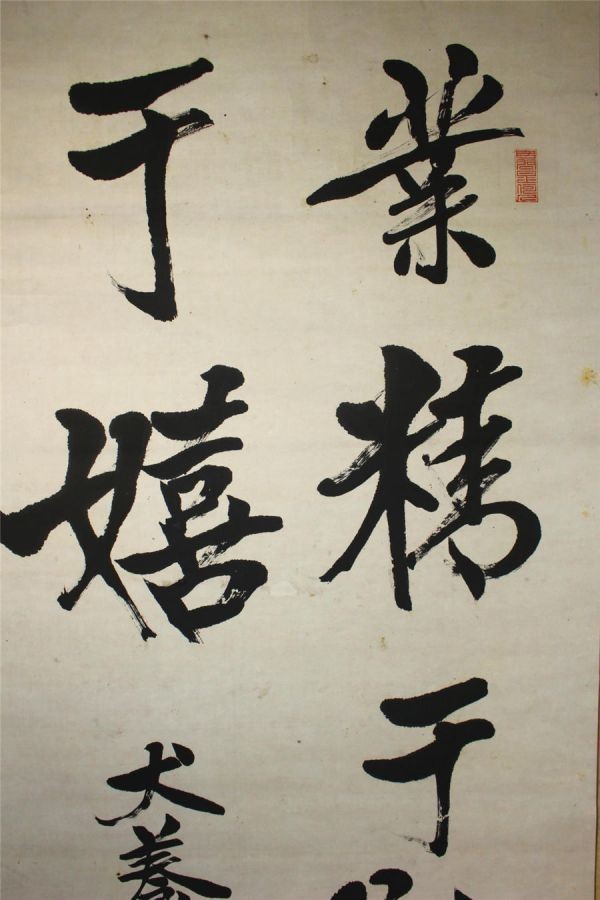 業精于
于嬉
犬養